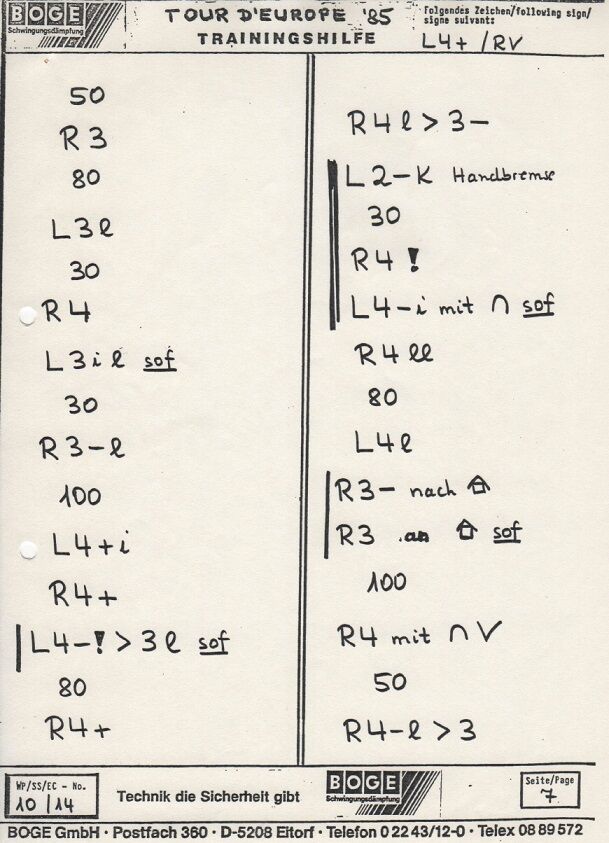 BOGE
Schwingungsdämpfung
TOUR D'EUROPE '85
TRAININGSHILFE
Folgendes Zeichen/following sign/
signe suivant:
L4+ /RV
50
R3
80
L3l
30
R4
L3il sof
30
R3-l
100
L4+i
R4+
L4-! > 3l sof
80
R4+
R4l > 3-
L2-K Handbremse
30
R4 !
L4-i mit ∩ sof
R4ll
80
L4l
R3- nach ⌂
R3 an ⌂ sof
100
R4 mit ∩ V
50
R4-l > 3
WP/SS/EC - No.
10/14
Technik die Sicherheit gibt
BOGE
Schwingungsdämpfung
Seite/Page
7
BOGE GmbH · Postfach 360 · D-5208 Eitorf · Telefon 0 22 43/12-0 · Telex 08 89 572